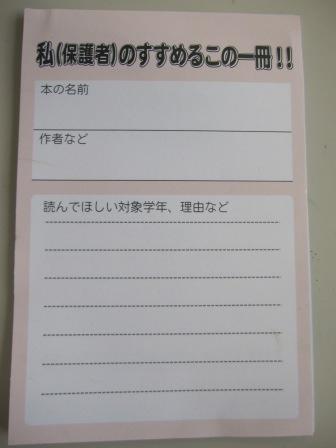 私(保護者)のすすめるこの一冊!!
本の名前
作者など
読んでほしい対象学年、理由など